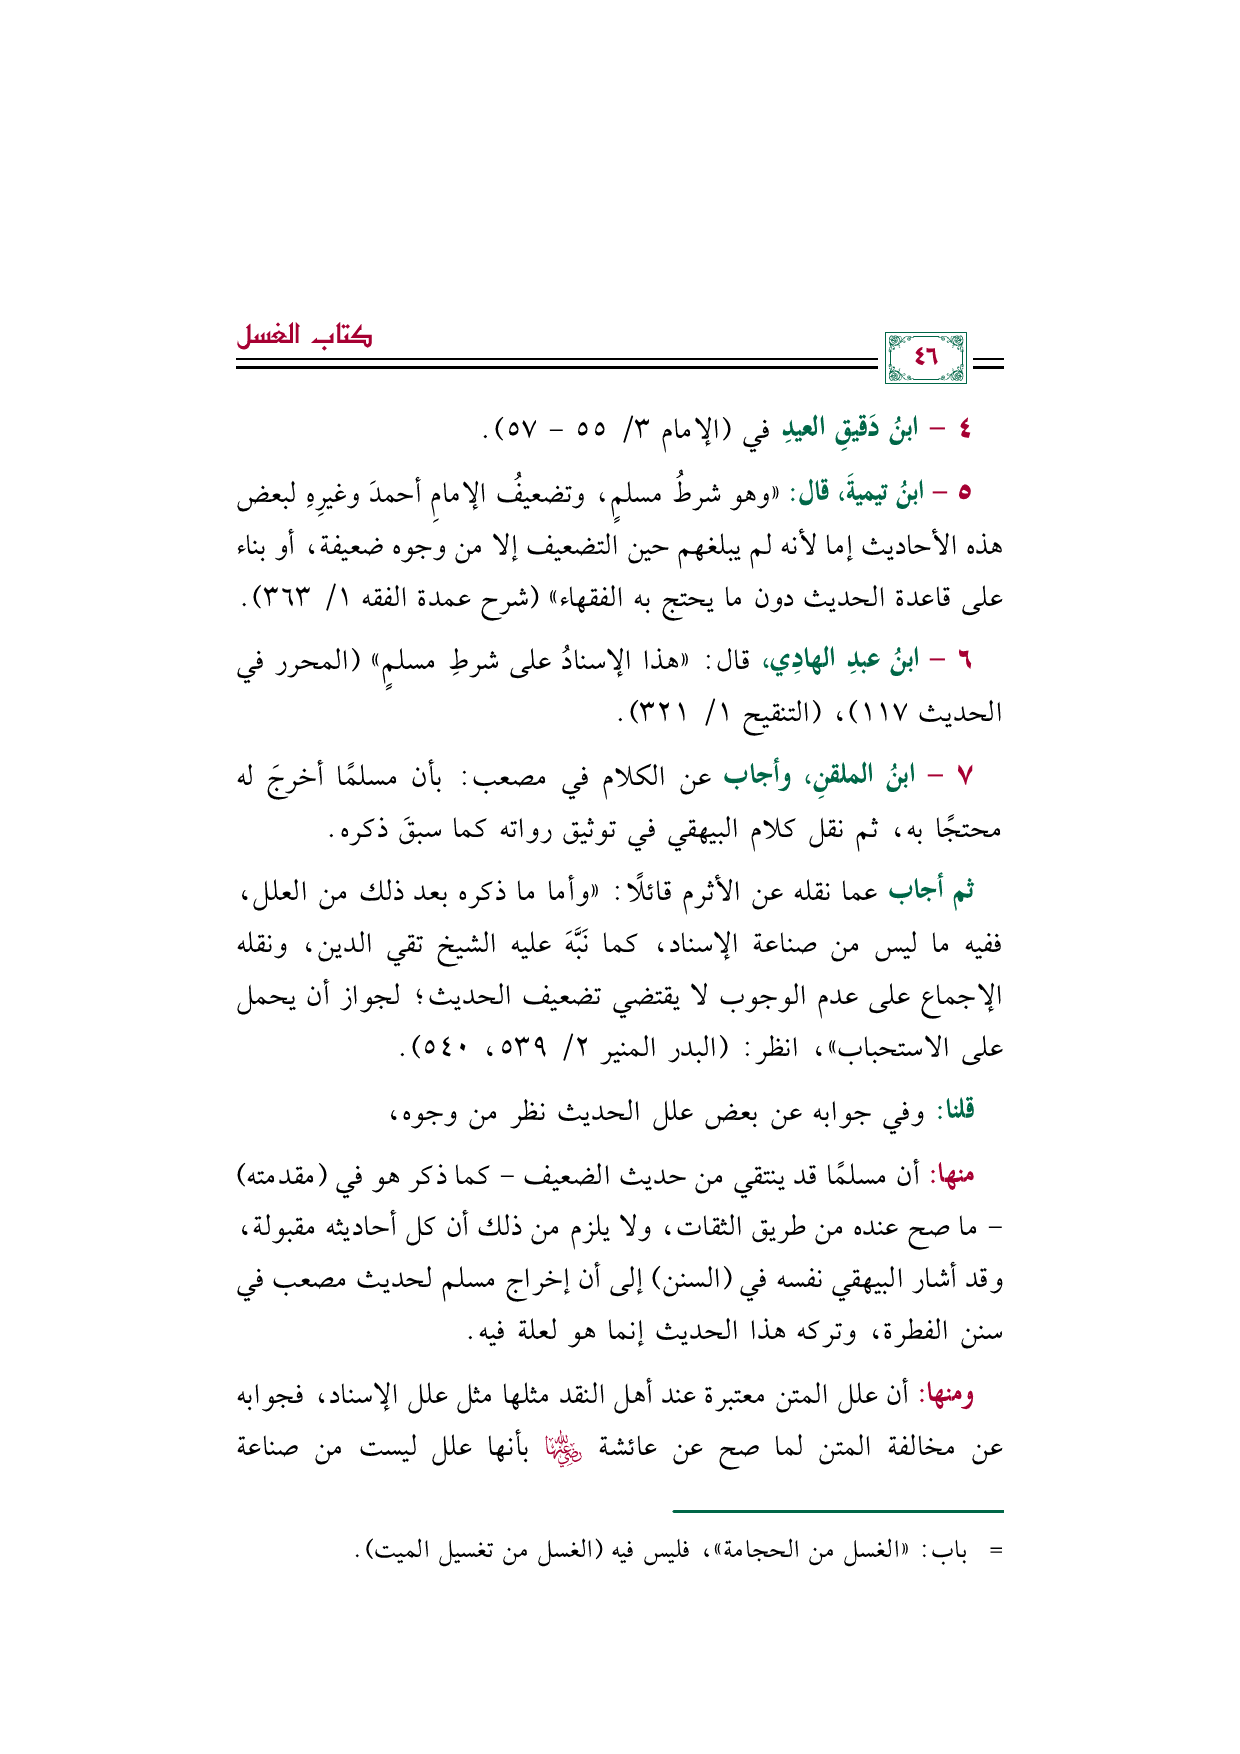 كتاب الغسل
٤٦
٤ - ابنُ دَقيقِ العيدِ في (الإمام ٣/ ٥٥ - ٥٧).
٥ - ابنُ تيميةَ، قال: «وهو شرطُ مسلمٍ، وتضعيفُ الإمامِ أحمدَ وغيرِهِ لبعض
هذه الأحاديث إما لأنه لم يبلغهم حين التضعيف إلا من وجوه ضعيفة، أو بناء
على قاعدة الحديث دون ما يحتج به الفقهاء» (شرح عمدة الفقه ١/ ٣٦٣).
٦ - ابنُ عبدِ الهادِي، قال: «هذا الإسنادُ على شرطِ مسلمٍ» (المحرر في
الحديث ١١٧)، (التنقيح ١/ ٣٢١).
٧ - ابنُ الملقنِ، وأجاب عن الكلام في مصعب: بأن مسلمًا أخرجَ له
محتجًا به، ثم نقل كلام البيهقي في توثيق رواته كما سبقَ ذكره.
ثم أجاب عما نقله عن الأثرم قائلًا: «وأما ما ذكره بعد ذلك من العلل،
ففيه ما ليس من صناعة الإسناد، كما نَبَّهَ عليه الشيخ تقي الدين، ونقله
الإجماع على عدم الوجوب لا يقتضي تضعيف الحديث؛ لجواز أن يحمل
على الاستحباب»، انظر: (البدر المنير ٢/ ٥٣٩، ٥٤٠).
قلنا: وفي جوابه عن بعض علل الحديث نظر من وجوه،
منها: أن مسلمًا قد ينتقي من حديث الضعيف - كما ذكر هو في (مقدمته)
- ما صح عنده من طريق الثقات، ولا يلزم من ذلك أن كل أحاديثه مقبولة،
وقد أشار البيهقي نفسه في (السنن) إلى أن إخراج مسلم لحديث مصعب في
سنن الفطرة، وتركه هذا الحديث إنما هو لعلة فيه.
ومنها: أن علل المتن معتبرة عند أهل النقد مثلها مثل علل الإسناد، فجوابه
عن مخالفة المتن لما صح عن عائشة رضي الله عنها بأنها علل ليست من صناعة
= باب: «الغسل من الحجامة»، فليس فيه (الغسل من تغسيل الميت).